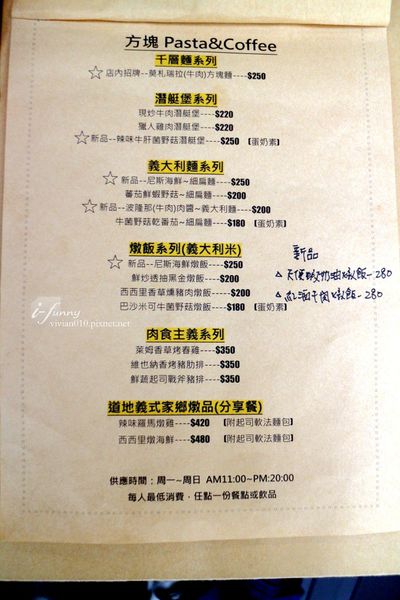 方塊 Pasta&Coffee
千層麵系列
☆店內招牌--莫札瑞拉(牛肉)方塊麵----$250
潛艇堡系列
現炒牛肉潛艇堡----$220
獵人雞肉潛艇堡----$220
☆新品--辣味牛肝菌野菇潛艇堡----$250 (蛋奶素)
義大利麵系列
☆新品--尼斯海鮮~細扁麵----$250
蕃茄鮮蝦野菇~細扁麵----$200
☆新品--波隆那(牛肉)肉醬~義大利麵----$200
牛菌野菇乾番茄~細扁麵----$180 (蛋奶素)
燉飯系列(義大利米)
☆新品--尼斯海鮮燉飯----$250
鮮炒透抽黑金燉飯----$200
西西里香草燻豬肉燉飯----$200
巴沙米可牛菌野菇燉飯----$180 (蛋奶素)
新品
奶油燉飯-280
牛肉燉飯-280
肉食主義系列
萊姆香草烤春雞----$350
維也納香烤豬肋排----$350
鮮蔬起司戰斧豬排----$350
道地義式家鄉燉品(分享餐)
辣味羅馬燉雞----$420 (附起司軟法麵包)
西西里燉海鮮----$480 (附起司軟法麵包)
供應時間：周一~周日 AM11:00~PM:20:00
每人最低消費，任點一份餐點或飲品
i-Funny
vivian010.pixnet.net